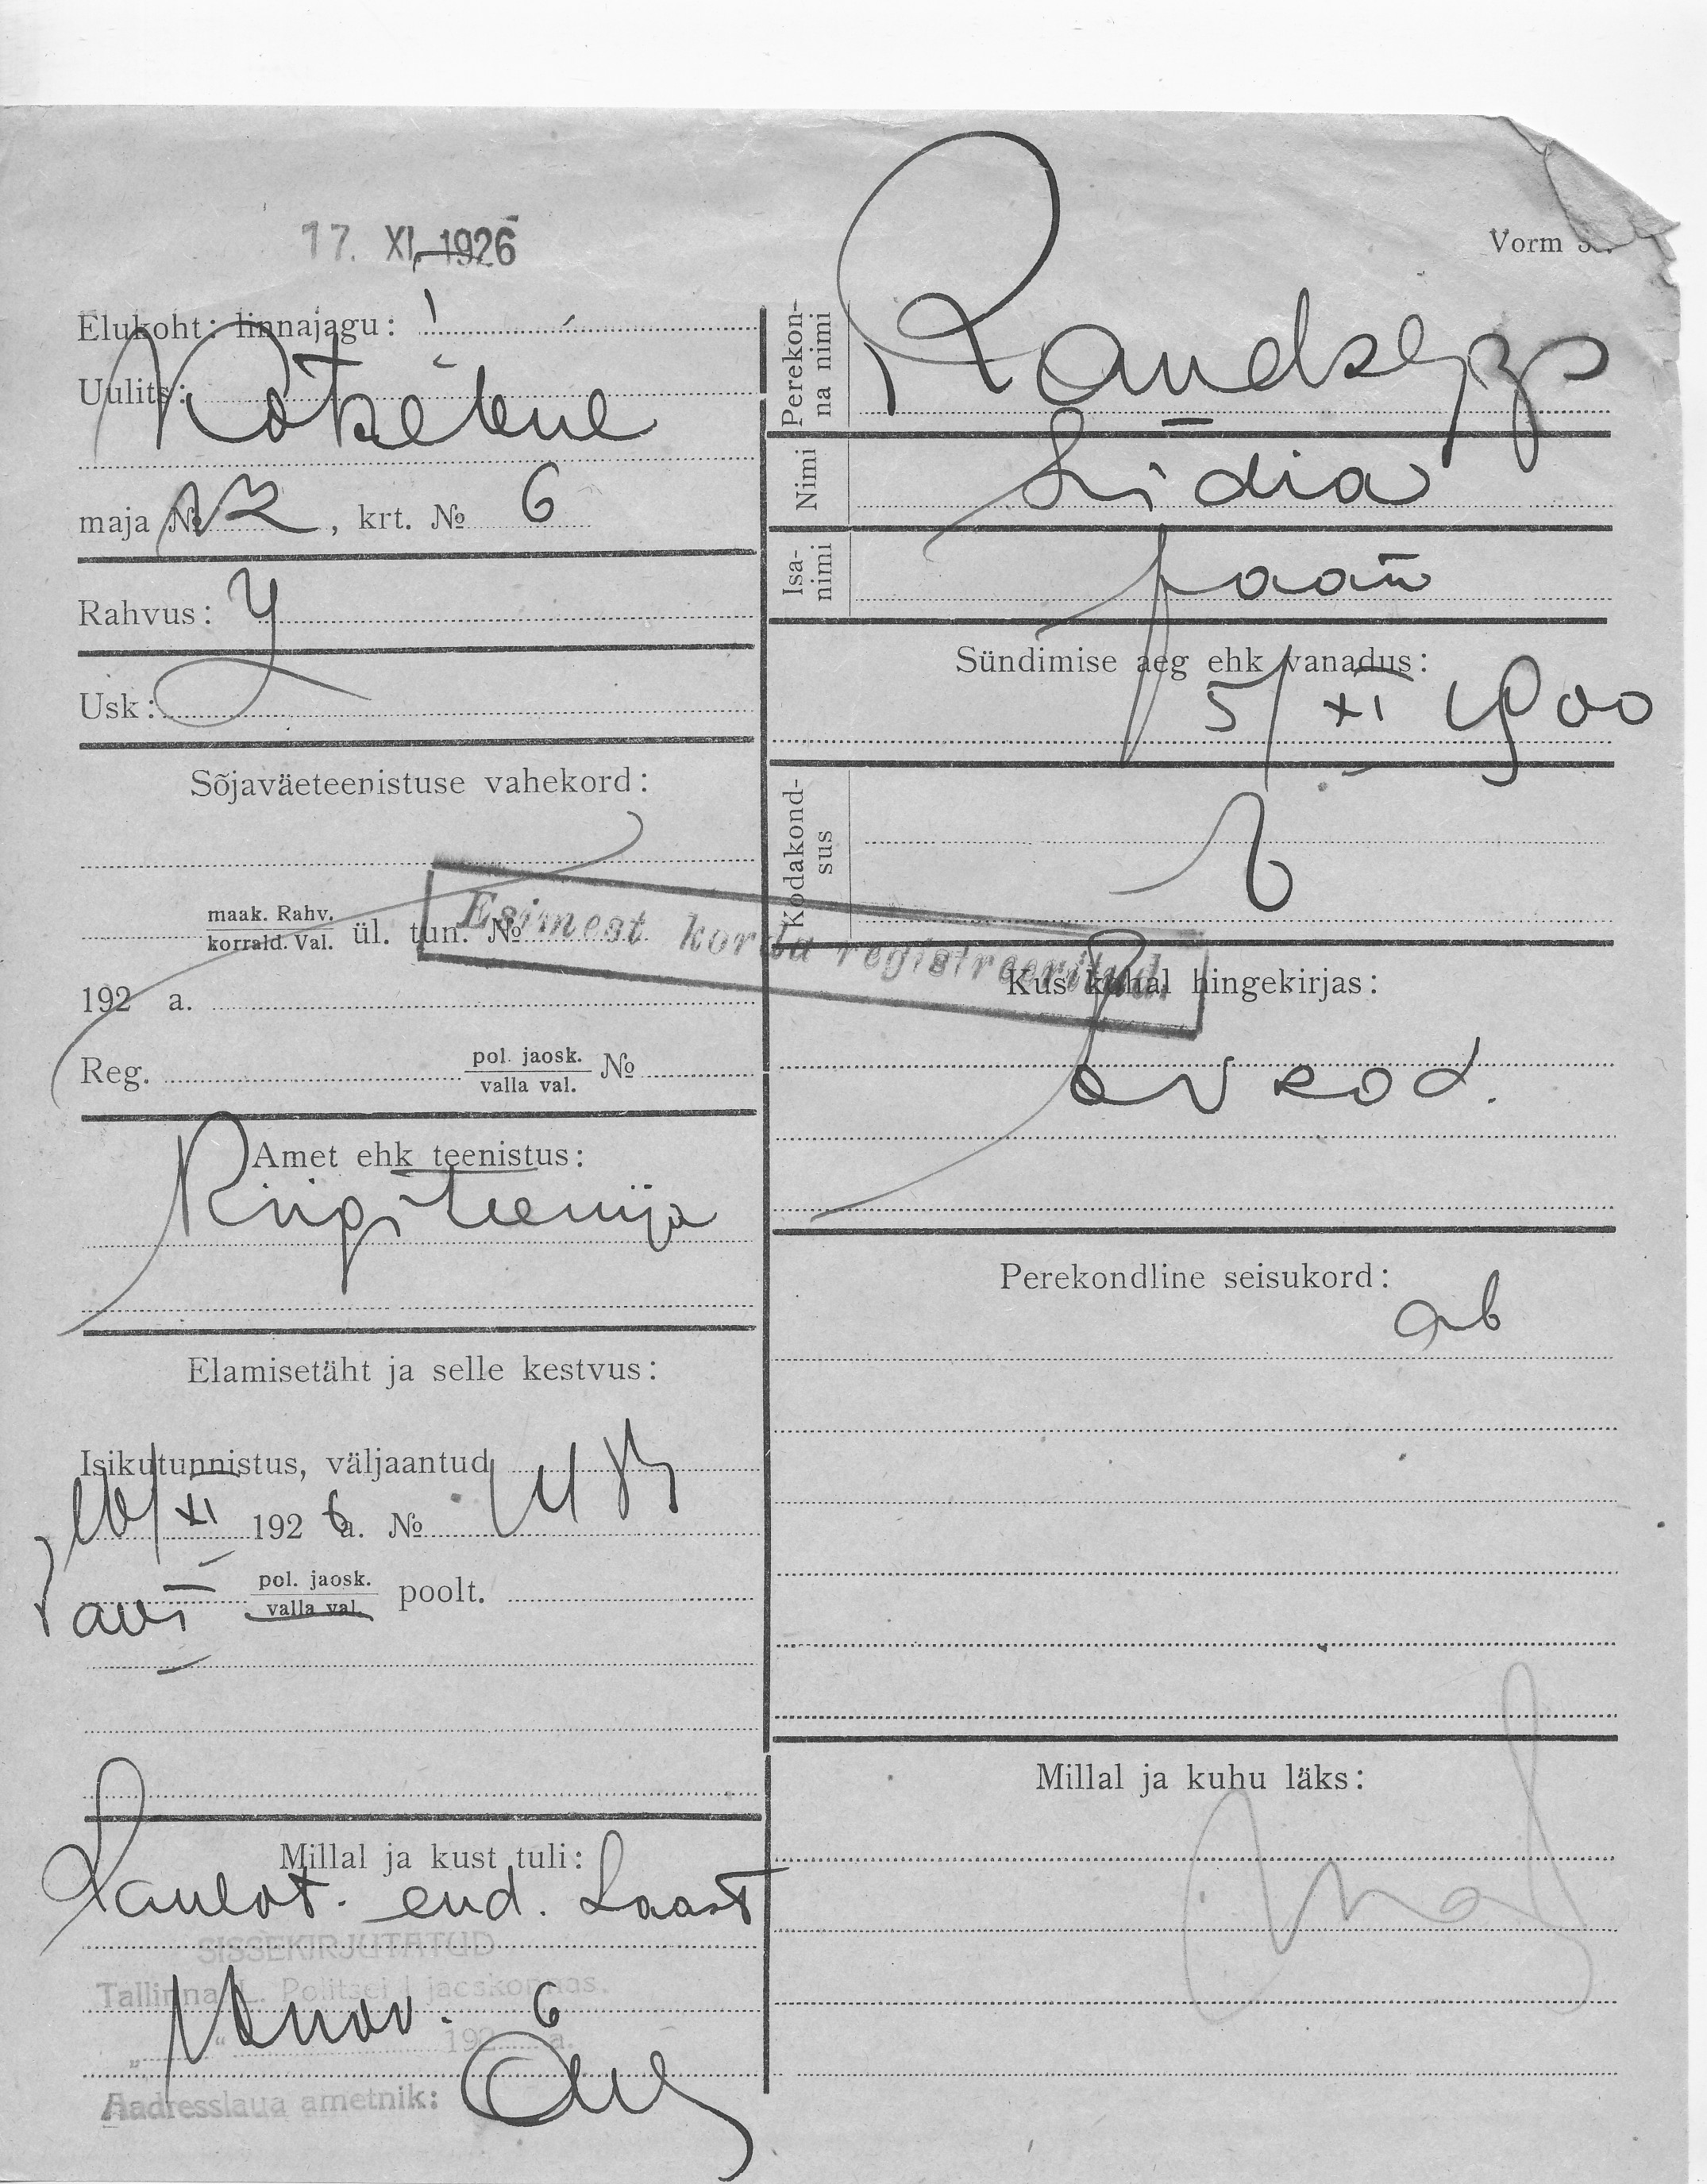 17. XI 1926
Vorm
Elukoht: linnajagu: I
Uulits: Kotzebue
maja № 12, krt. № 6
Rahvus:
Usk:
Sõjaväeteenistuse vahekord:
maak. Rahv.
korrald. Val. ül. tun. №
192 a.
Reg. pol. jaosk.
valla val. №
Amet ehk teenistus:
Riigiteenija
Elamisetäht ja selle kestvus:
Isikutunnistus, väljaantud
XI 1926 a. №
pol. jaosk.
valla val. poolt.
Millal ja kust tuli:
end. Laast
SISSEKIRJUTATUD
Tallinna L. Politsei I jaoskonnas.
nov. 6
" " 192 a.
Aadresslaua ametnik:
Perekon-
na nimi
Randsepp
Nimi Lidia
Isa-
nimi Jaan
Sündimise aeg ehk vanadus:
5/XI 1900
Kodakond-
sus
Esimest korda registreeritud.
Kus kohal hingekirjas:
kod.
Perekondline seisukord:
ab
Millal ja kuhu läks: